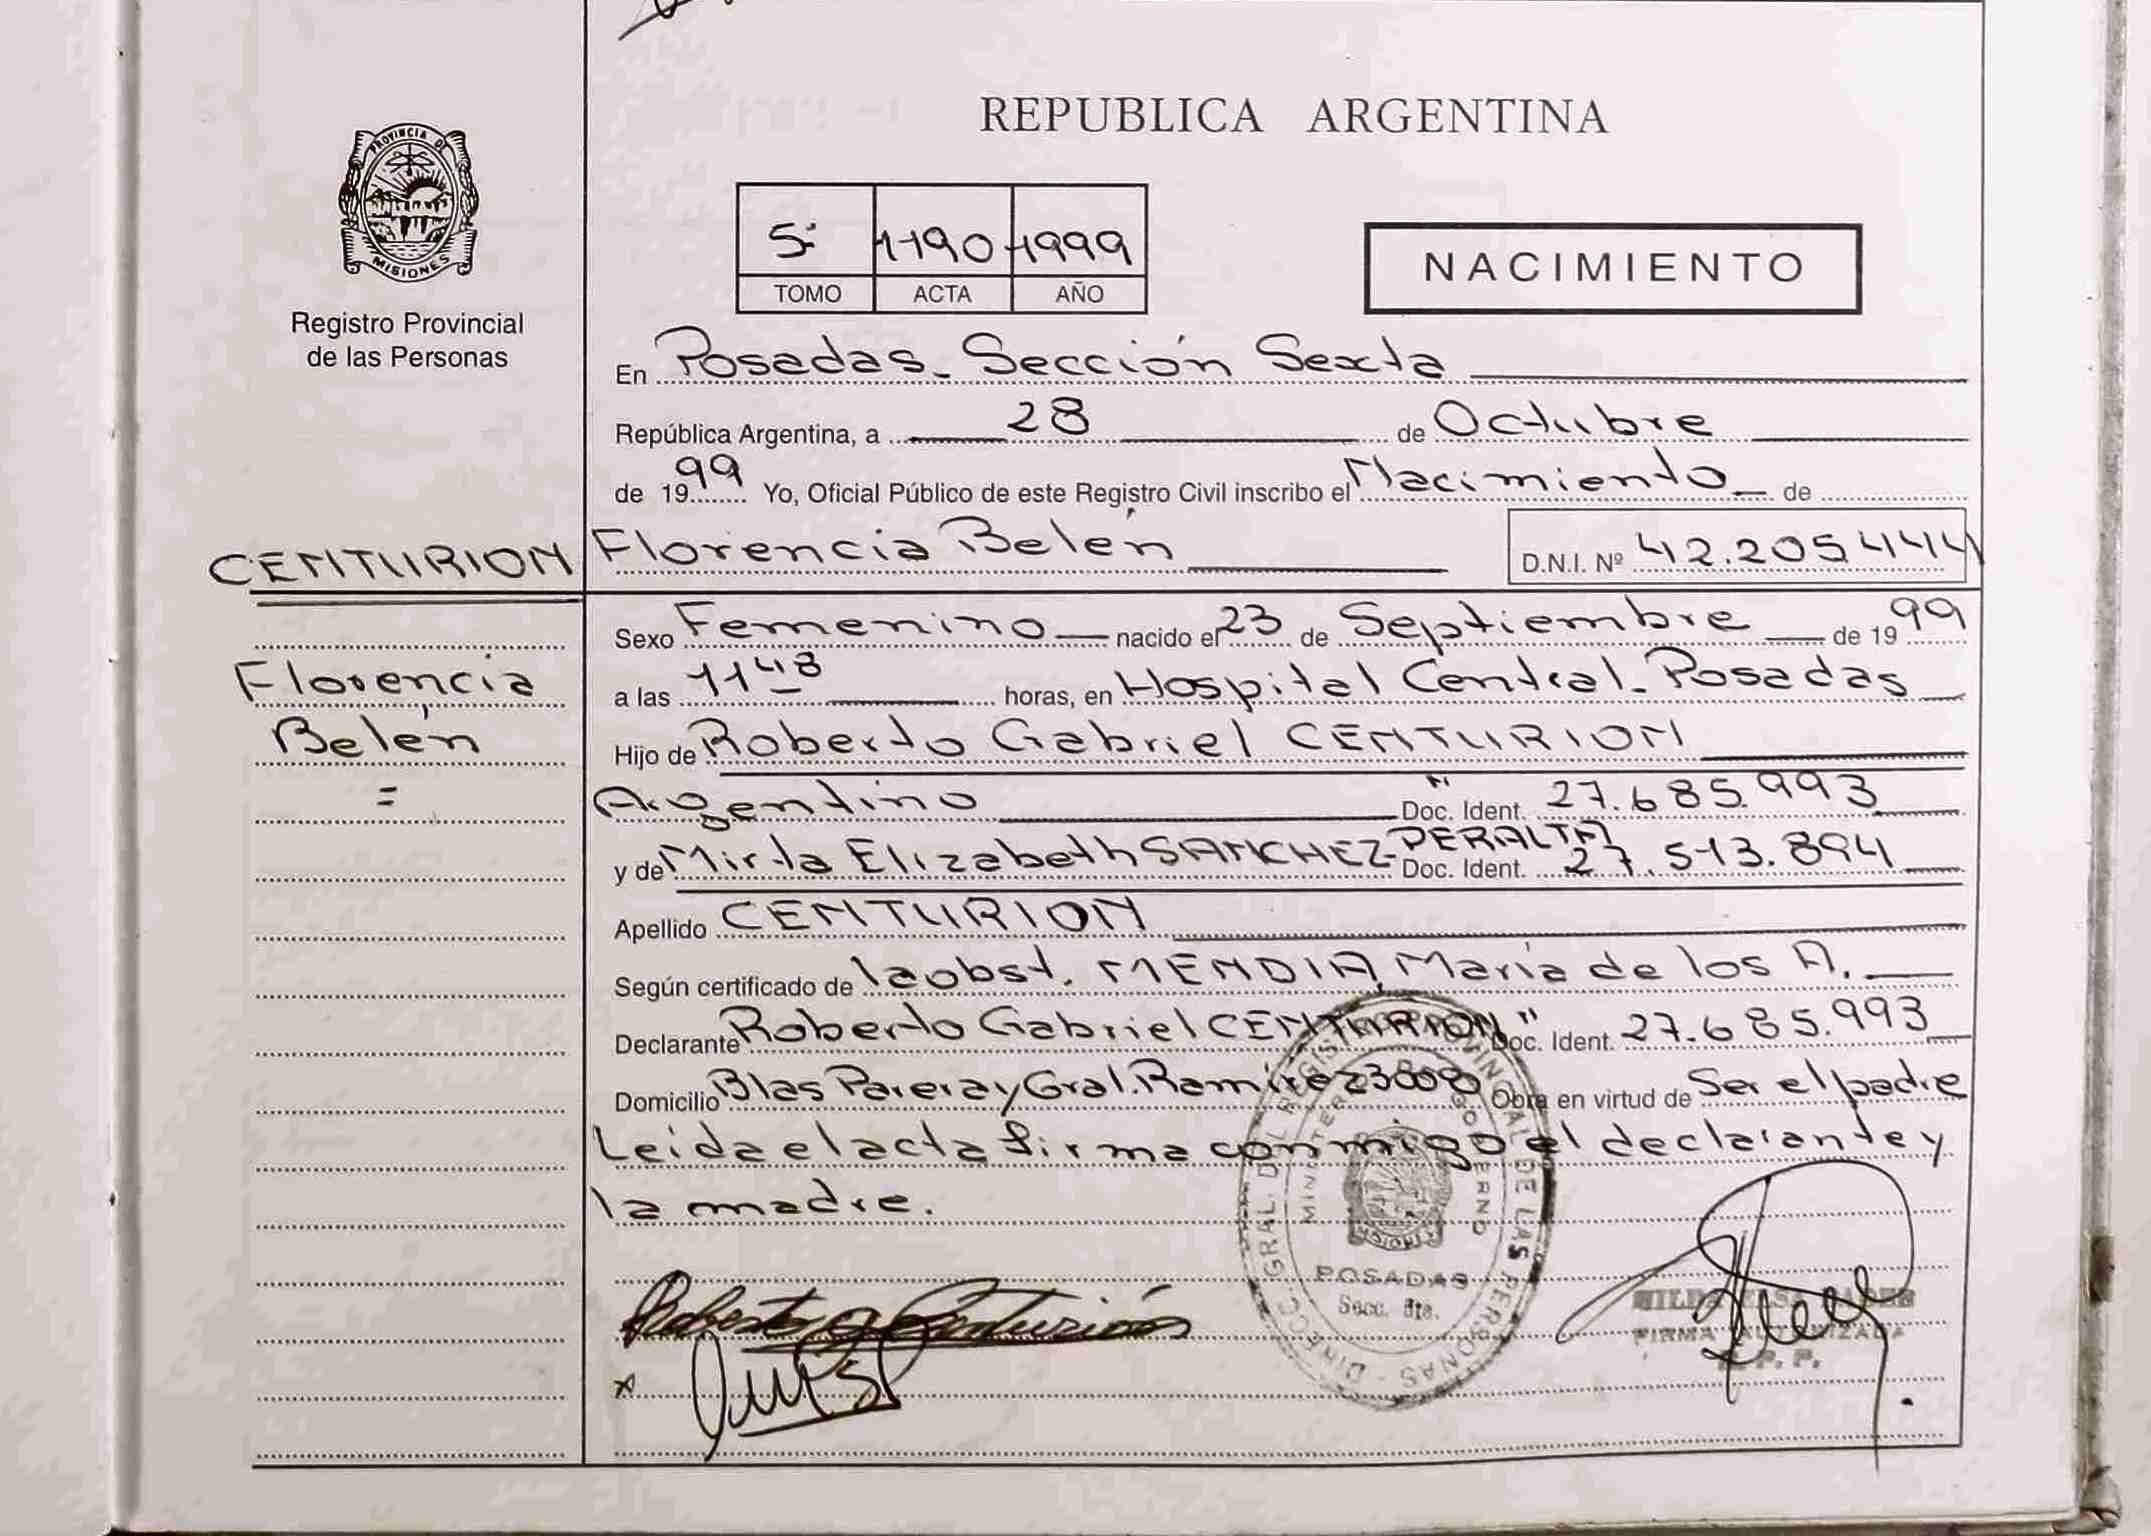 REPUBLICA ARGENTINA
PROVINCIA DE
MISIONES
Registro Provincial
de las Personas
5º 1190 1999
TOMO ACTA AÑO
NACIMIENTO
En Posadas - Sección Sexta
República Argentina, a 28 de Octubre
de 1999 Yo, Oficial Público de este Registro Civil inscribo el Nacimiento de
CENTURION Florencia Belén D.N.I. Nº 42.205444
Sexo Femenino nacido el 23 de Septiembre de 1999
Florencia
Belén
=
a las 11 48 horas, en Hospital Central - Posadas
Hijo de Roberto Gabriel CENTURION
Argentino " Doc. Ident. 27.685.993
y de Mirta Elizabeth SANCHEZ PERALTA Doc. Ident. 27.513.894
Apellido CENTURION
Según certificado de la obst. MENDIA, María de los A.
Declarante Roberto Gabriel CENTURION " Doc. Ident. 27.685.993
Domicilio Blas Parera y Gral. Ramírez Obra en virtud de Ser el padre
Leida el acta firma conmigo el declarante y
la madre.
DIRECC. GRAL. DEL REGISTRO PROVINCIAL DE LAS PERSONAS
MINISTERIO GOBIERNO
POSADAS
Secc. 6ta.
Roberto G Centurión
x
FIRMA AUTORIZADA